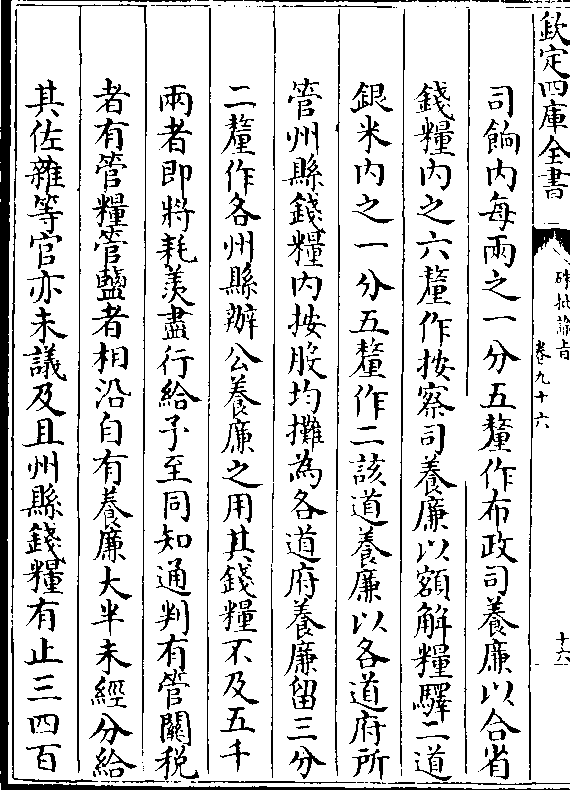 欽定四庫全書
硃批諭旨
卷九十六
十六
司餉内每兩之一分五釐作布政司養廉以合省
錢糧内之六釐作按察司養廉以額解糧驛二道
銀米内之一分五釐作二該道養廉以各道府所
管州縣錢糧内按股均攤為各道府養廉留三分
二釐作各州縣辦公養廉之用其錢糧不及五千
兩者即將耗羡盡行給予至同知通判有管關税
者有管糧管鹽者相沿自有養廉大半未經分給
其佐雜等官亦未議及且州縣錢糧有止三四百